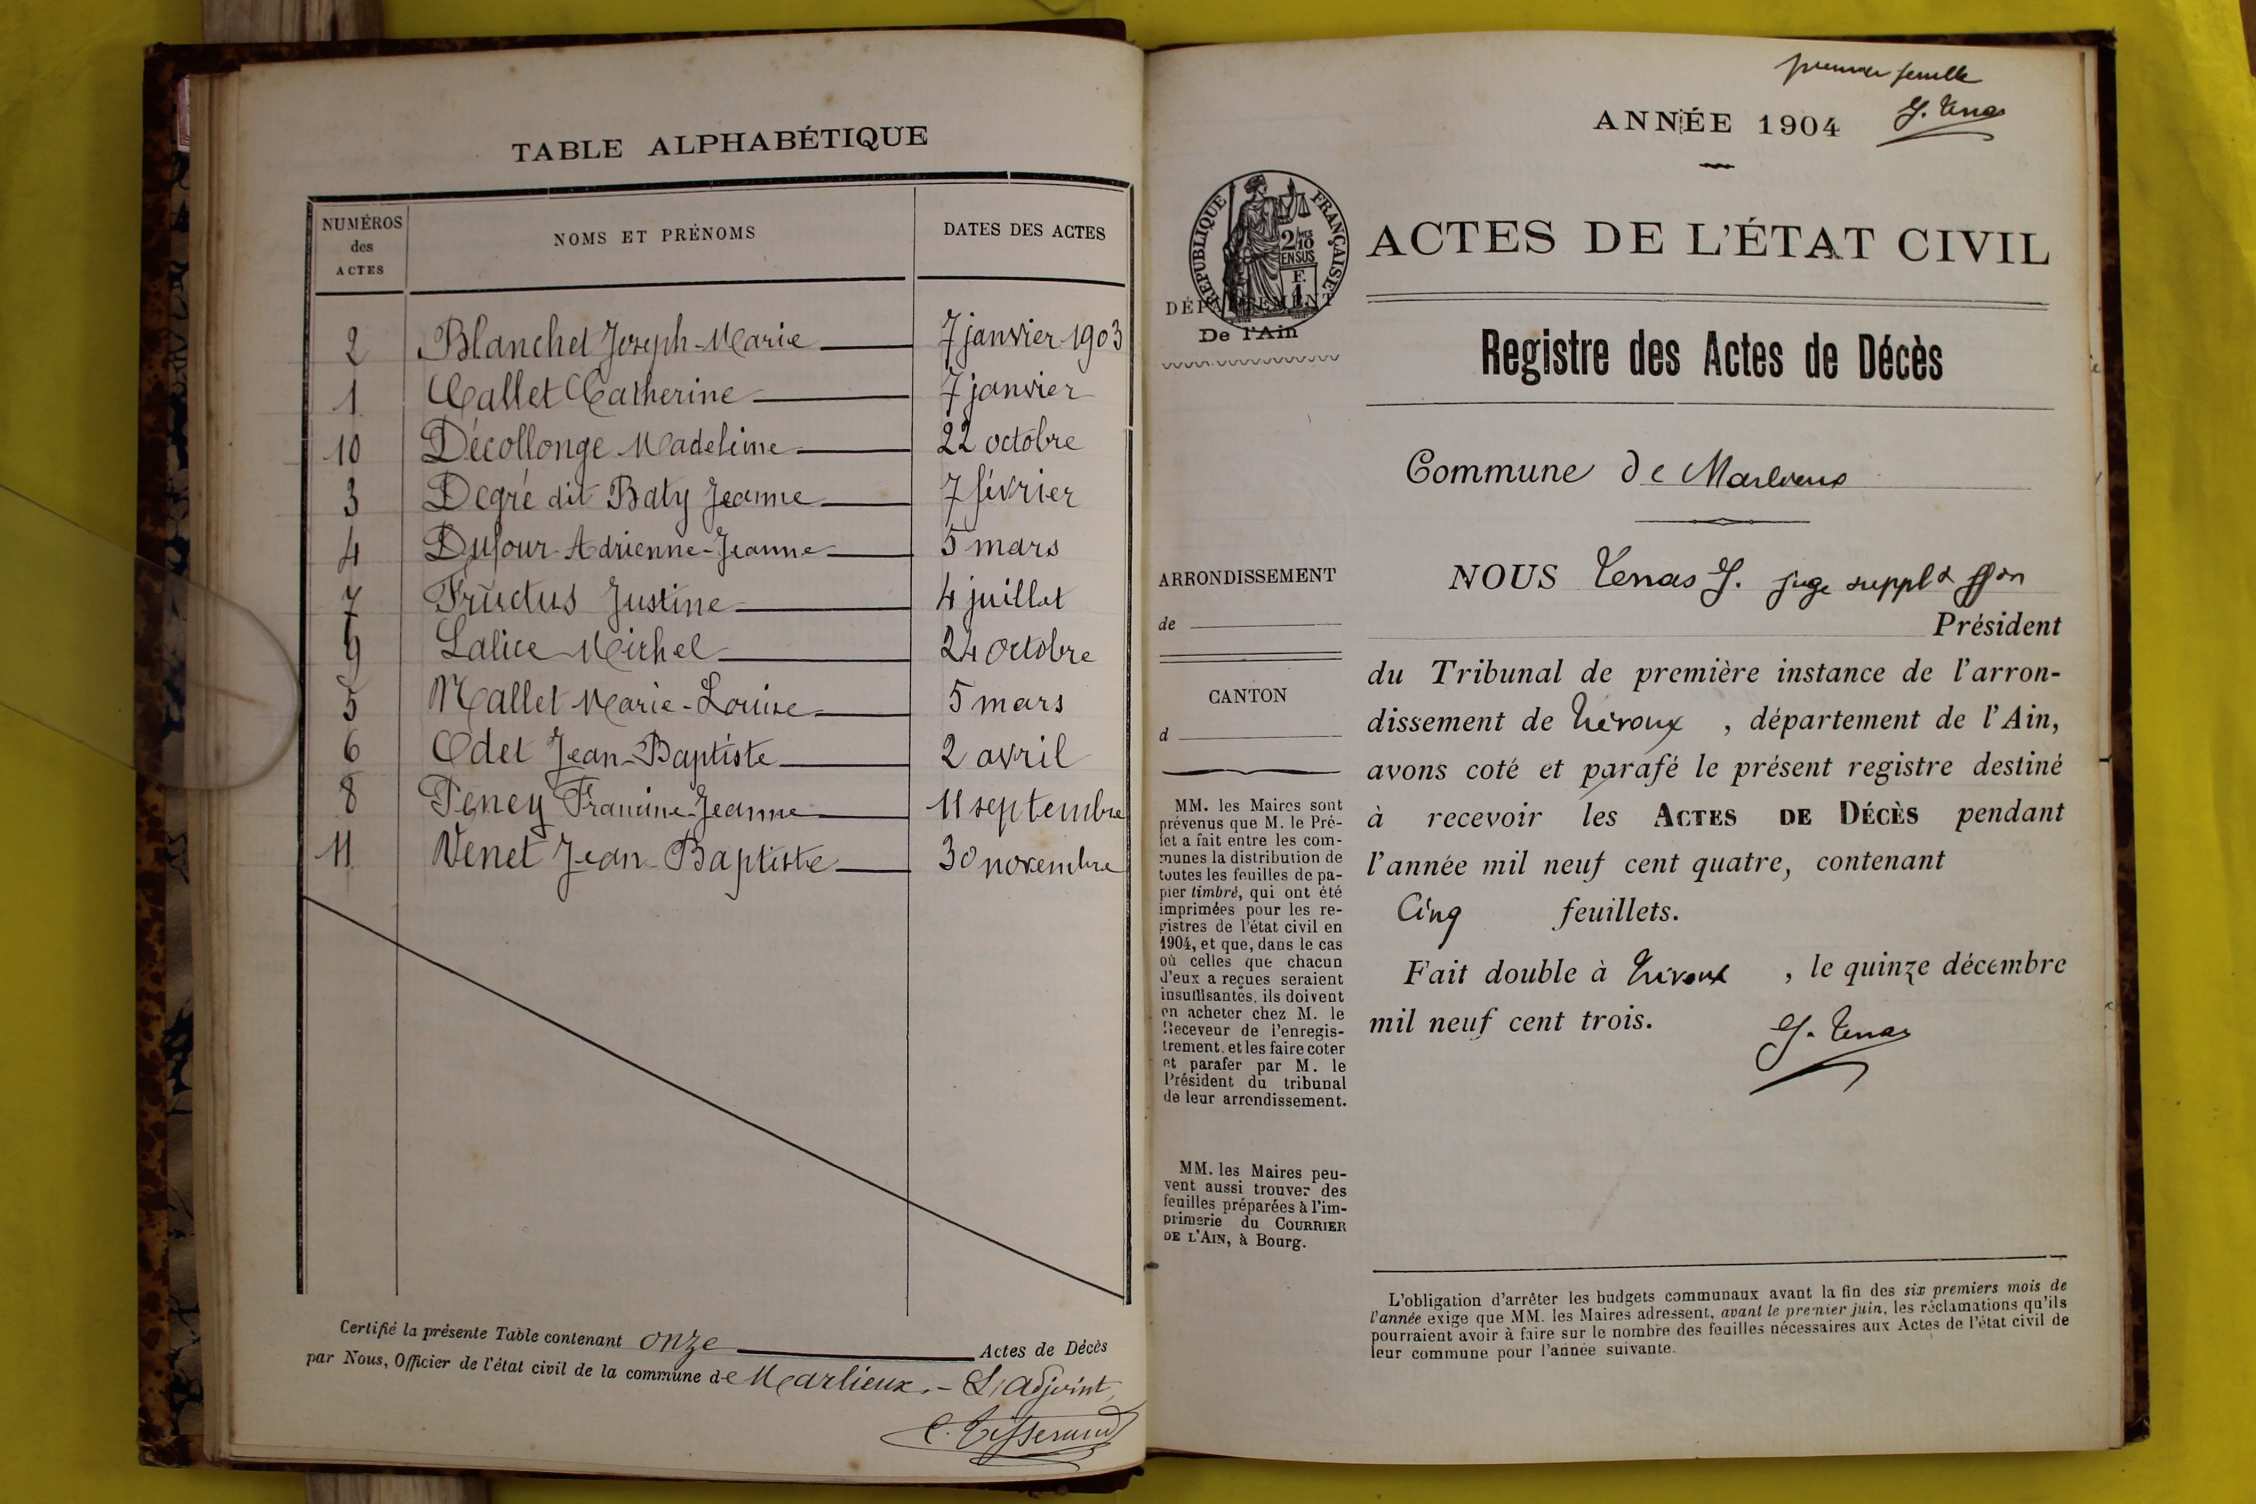 TABLE ALPHABÉTIQUE
NUMÉROS des ACTES NOMS ET PRÉNOMS DATES DES ACTES
2 Blanchet Joseph-Marie 7 janvier 1903
1 Callet Catherine 7 janvier
10 Décollonge Madeleine 22 octobre
3 Degré dit Baty Jeanne 7 février
4 Dufour-Adrienne-Jeanne 5 mars
7 Fructus Justine 4 juillet
9 Lalice Michel 24 octobre
5 Mallet Marie-Louise 5 mars
6 Odet Jean-Baptiste 2 avril
8 Peney Francine-Jeanne 11 septembre
11 Venet Jean-Baptiste 30 novembre
Certifié la présente Table contenant onze Actes de Décès
par Nous, Officier de l'état civil de la commune de Marlieux. - L'adjoint,
C. Tisserand
premier feuille
ANNÉE 1904
RÉPUBLIQUE FRANÇAISE
2/10 EN SUS
F. 1
ACTES DE L'ÉTAT CIVIL
DÉPARTEMENT
De l'Ain
Registre des Actes de Décès
Commune de Marlieux
ARRONDISSEMENT
de
CANTON
d
MM. les Maires sont
prévenus que M. le Pré-
fet a fait entre les com-
munes la distribution de
toutes les feuilles de pa-
pier timbré, qui ont été
imprimées pour les re-
gistres de l'état civil en
1904, et que, dans le cas
où celles que chacun
d'eux a reçues seraient
insuffisantes, ils doivent
en acheter chez M. le
Receveur de l'enregis-
trement, et les faire coter
et parafer par M. le
Président du tribunal
de leur arrondissement.
MM. les Maires peu-
vent aussi trouver des
feuilles préparées à l'im-
primerie du COURRIER
DE L'AIN, à Bourg.
NOUS Tenas J. juge suppl t ffon
Président
du Tribunal de première instance de l'arron-
dissement de Trévoux, département de l'Ain,
avons coté et parafé le présent registre destiné
à recevoir les ACTES DE DÉCÈS pendant
l'année mil neuf cent quatre, contenant
Cinq feuillets.
Fait double à Trévoux, le quinze décembre
mil neuf cent trois.
J. Tenas
L'obligation d'arrêter les budgets communaux avant la fin des six premiers mois de
l'année exige que MM. les Maires adressent, avant le premier juin, les réclamations qu'ils
pourraient avoir à faire sur le nombre des feuilles nécessaires aux Actes de l'état civil de
leur commune pour l'année suivante.